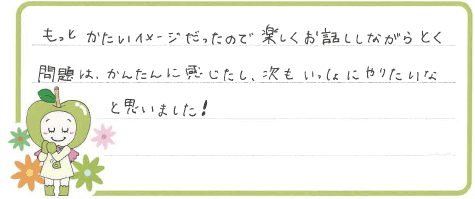 もっと かたいイメージだったので 楽しくお話ししながらとく
問題は、かんたんに感じたし、次も いっしょにやりたいな
と思いました!